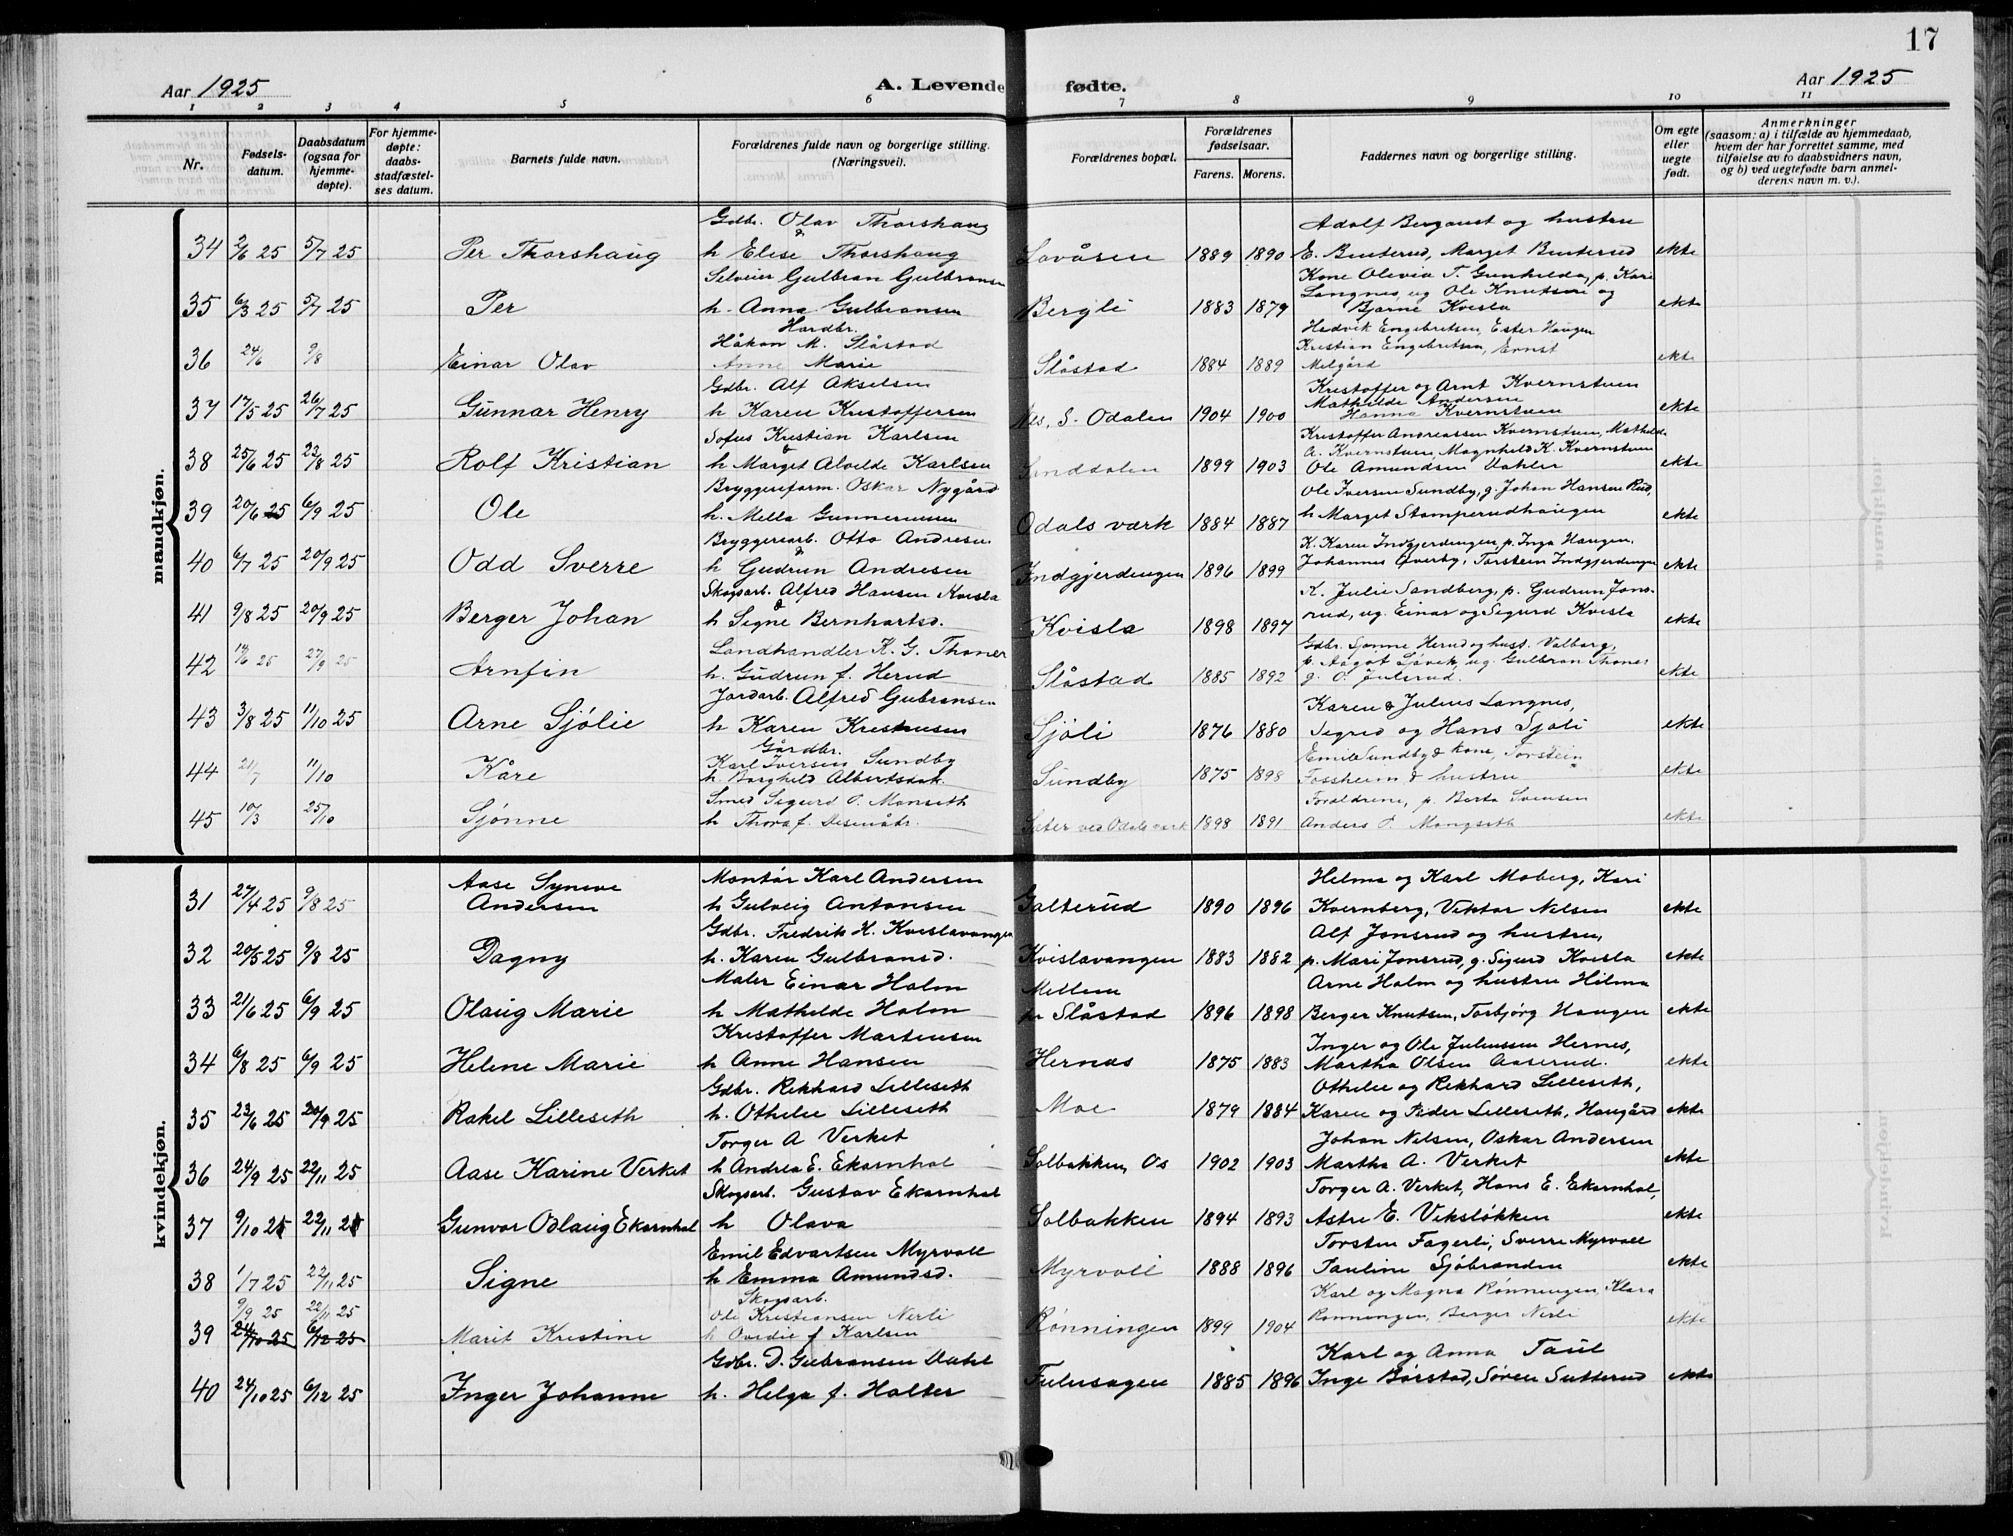 17
Aar 1925
A. Levende fødte.
Aar 1925
1 2 3 4 5 6 7 8 9 10 11
Nr.
Fødselsdatum.
Daabsdatum (ogsaa for hjemmedøpte).
For hjemmedøpte: daabsstadfæstelses datum.
Barnets fulde navn.
Forældrenes fulde navn og borgerlige stilling. (Næringsvei).
Forældrenes bopæl.
Forældrenes fødselsaar.
Farens. Morens.
Faddernes navn og borgerlige stilling.
Om egte eller uegte født.
Anmerkninger (saasom: a) i tilfælde av hjemmedaab, hvem der har forrettet samme, med tilføielse av to daabsvidners navn, og b) ved uegtefødte barn anmelderens navn m. v.).
mandkjøn.
Gdbr. Olav Thorshaug Adolf Bergaust og hustru
34 2/6 25 5/7 25 Per Thorshaug & h Elise Thorshaug Lovåsen 1889 1890 E. Buterud, Marget Buterud ekte
Gulbran Gulbransen Kone Olevia T. Gunhilda, p. Kari
35 6/3 25 5/7 25 Per h. Anna Gulbransen Bergli 1883 1879 Langnes, ug Ole Knutsen og Bjarne Kvisla ekte
Hardbr. Håkon M. Slåstad Hedvik Engebretsen, Ester Haugen
36 24/6 9/8 Einar Olav Anne Marie Slåstad 1884 1889 Kristian Engebretsen, Ernst Melgård ekte
Gdbr. Alf Akselsen Kristoffer og Arnt Kvernstuen
37 17/5 25 26/7 25 Gunnar Henry h Karen Kristoffersen Nes, S. Odalen 1904 1900 Mathilde Andersen Hanna Kvernstuen ekte
Sofus Kristian Karlsen Kristoffer Andreassen Kvernstuen, Mathilde
38 25/6 25 23/8 25 Rolf Kristian & h Marget Alvilde Karlsen Sanddalen 1899 1903 A. Kvernstuen, Magnhild K. Kvernstuen Ole Amundsen Dahlen ekte
Bryggeriform. Oskar Nygård Ole Iversen Sundby, g. Johan Hansen Rud,
39 20/6 25 6/9 25 Ole h. Mella Gunneriussen Odals værk 1884 1887 h Marget Stomperudhaugen ekte
Bryggeriarb. Otto Andresen K. Karen Indgjerdingen, p. Inga Haugen,
40 6/7 25 20/9 25 Odd Sverre & h Gudrun Andresen Indgjerdingen 1896 1899 Johannes Øverby, Torstein Indgjerdingen ekte
Skogsarb. Alfred Hansen Kvisla K. Julie Sandberg, p. Gudrun Jons-
41 9/8 25 20/9 25 Berger Johan & h Signe Bernhartsd. Kvisla 1898 1897 rud, ug. Einar og Sigurd Kvisla ekte
Landhandler K. G. Thoner Gdbr. Sjønne Herud og hust. Valborg,
42 25 27/9 25 Arnfin h. Gudrun f. Herud Slåstad 1885 1892 p. Aagot Sjøvek, ug. Gulbran Thoner g. O. Julsrud. ekte
Jordarb. Alfred Gubransen Karen & Julius Langnes,
43 3/8 25 11/10 25 Arne Sjølie h Karen Kristiansen Sjøli 1876 1880 Sigrid og Hans Sjøli ekte
Gårdbr. Karl Iversen Sundby Emil Sundby & kone, Torstein
44 21/7 11/10 Kåre h. Borghild Albertsdat. Sundby 1875 1898 Fossheim & hustru ekte
Smed Sigurd O. Monseth Foreldrene, p. Berta Svensen
45 10/3 25/10 Sjønne h Thora f. Disenådr. Sæter ved Odals værk 1898 1891 Anders O. Mangseth ekte
kvindekjøn.
Aase Synøve Montør Karl Andersen Helma og Karl Moberg, Kari
31 27/4 25 9/8 25 Andersen h Gulveig Antonsen Galterud 1890 1896 Kvernberg, Viktor Nilsen ekte
Gdbr. Fredrik H. Kvislavangen Alf Jonsrud og hustru,
32 20/5 25 9/8 25 Dagny h. Karen Gulbransd. Kvislavangen 1883 1882 p. Mari Jonsrud, g. Sigurd Kvisla ekte
Maler Einar Holm Mellem Arne Holm og hustru Hilma
33 21/6 25 6/9 25 Olaug Marie h Mathilde Holm Slåstad 1896 1898 Berger Knutsen, Torbjørg Haugen ekte
Kristoffer Martinsen Inger og Ole Juliussen Hernes,
34 6/8 25 6/9 25 Helene Marie h Anne Hansen Hernæs 1875 1883 Martha Olsen Aaserud. ekte
Gdbr. Rikhard Lilleseth Othilie og Rikhard Lilleseth,
35 23/6 25 20/9 25 Rakel Lilleseth h. Othilie Lilleseth Moe 1879 1884 Karen og Peder Lilleseth, Haugård ekte
Torger A Verket Johan Nilsen, Oskar Andersen
36 24/9 25 22/11 25 Aase Karine Verket h Andrea E. Ekornhol Solbakken, Os 1902 1903 Martha A. Verket ekte
Skogsarb. Gustav Ekornhol Torger A. Verket, Hans E. Ekornhol,
37 9/10 25 22/11 25 Gunvor Odlaug Ekornhol h Olava Solbakken 1894 1893 Astri E. Veksløkken ekte
Emil Edvartsen Myrvoll Torsten Fagerli, Sverre Myrvoll
38 1/7 25 22/11 25 Signe h Emma Amundsd. Myrvoll 1888 1896 Pauline Sjøbranden ekte
9/9 25 22/11 25 Skogsarb. Ole Kristiansen Nerli Karl og Magna Rønningen, Klara
39 24/10 25 6/12 25 Marit Kristine h Ovidie f Karlsen Rønningen 1899 1904 Rønningen, Berger Nerli ekte
Gdbr. D. Gubransen Dahl Karl og Anna Taul
40 24/10 25 6/12 25 Inger Johanne h. Helga f. Holter Fulusagen 1885 1896 Inga Børstad, Søren Sutterud ekte